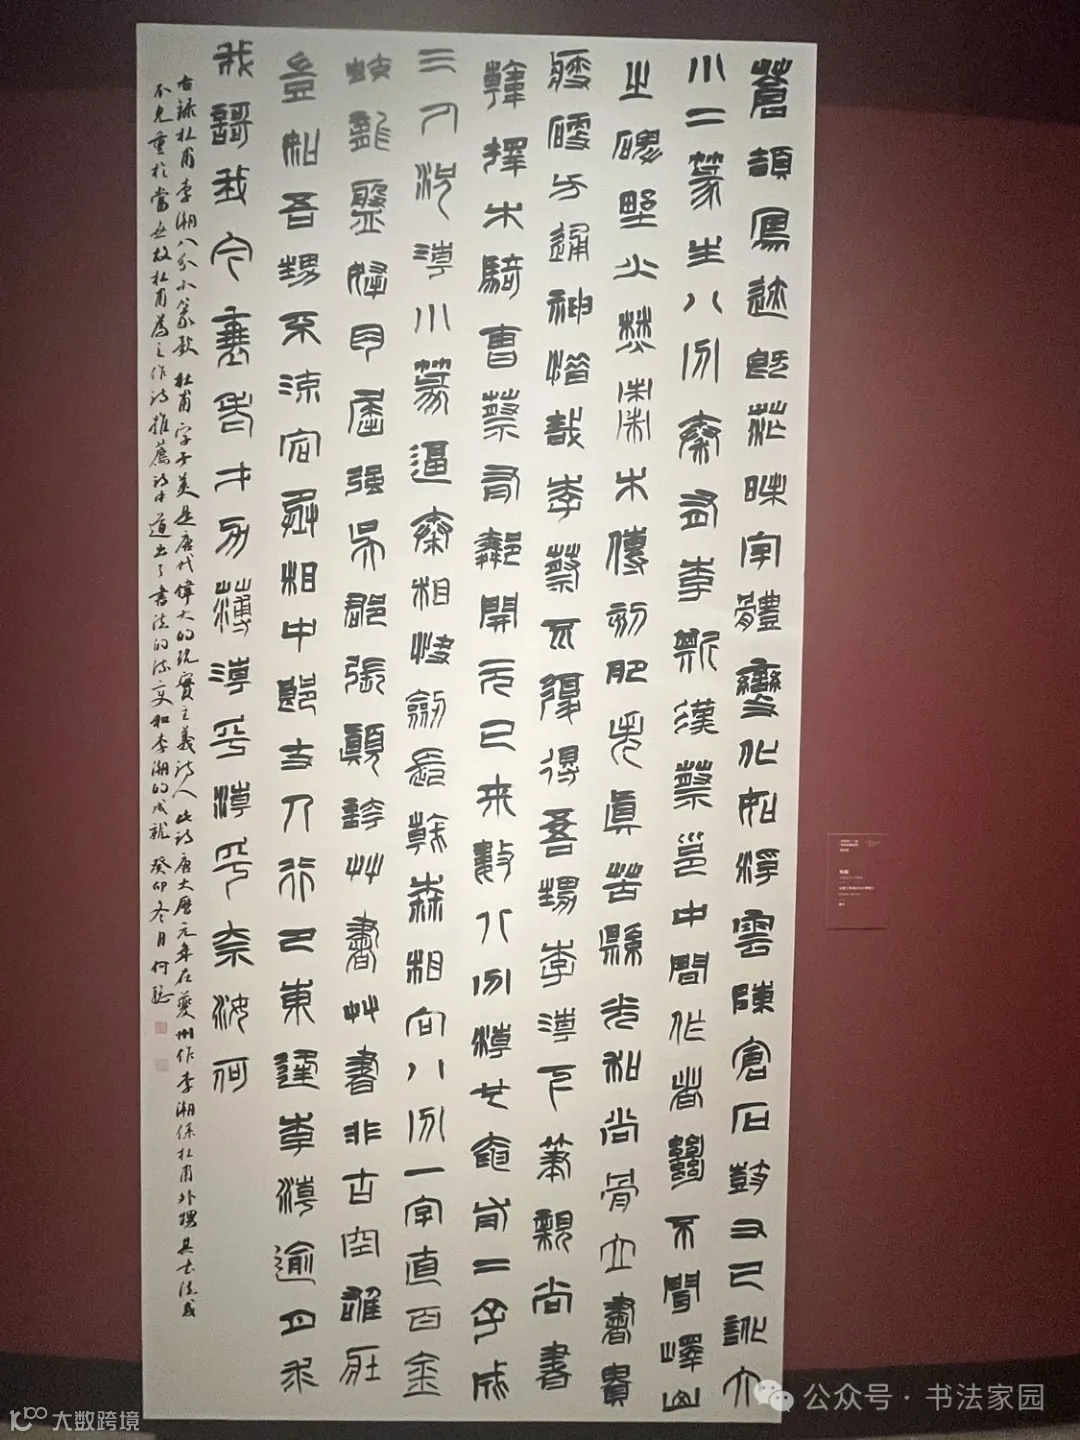 蒼頡鳥迹既茫昧字體變化如浮雲陳倉石鼓又已訛大
小二篆生八分秦有李斯漢蔡邕中間作者絕不聞嶧山
之碑野火焚棗木傳刻肥失真苦縣光和尚骨立書貴
瘦硬方通神惜哉李蔡不復得吾甥李潮下筆親尚書
韓擇木騎曹蔡有鄰開元已來數八分潮也奄有二子成
三人況潮小篆逼秦相快劍長戟森相向八分一字直百金
蛟龍盤拏肉屈強吳郡張顛誇艸書艸書非古空雄壯
豈如吾甥不流宕丞相中郎丈人行巴東逢李潮逾月求
我謌我今衰老才力薄潮乎潮乎奈汝何
右錄杜甫李潮八分小篆歌杜甫字子美是唐代偉大的現實主義詩人此詩唐大曆元年在夔州作李潮係杜甫外甥其書法或
不見重於當世故杜甫為之作詩推薦詩中道出了書法的流變和李潮的成就癸卯冬月何
公众号·书法家园
大数跨境